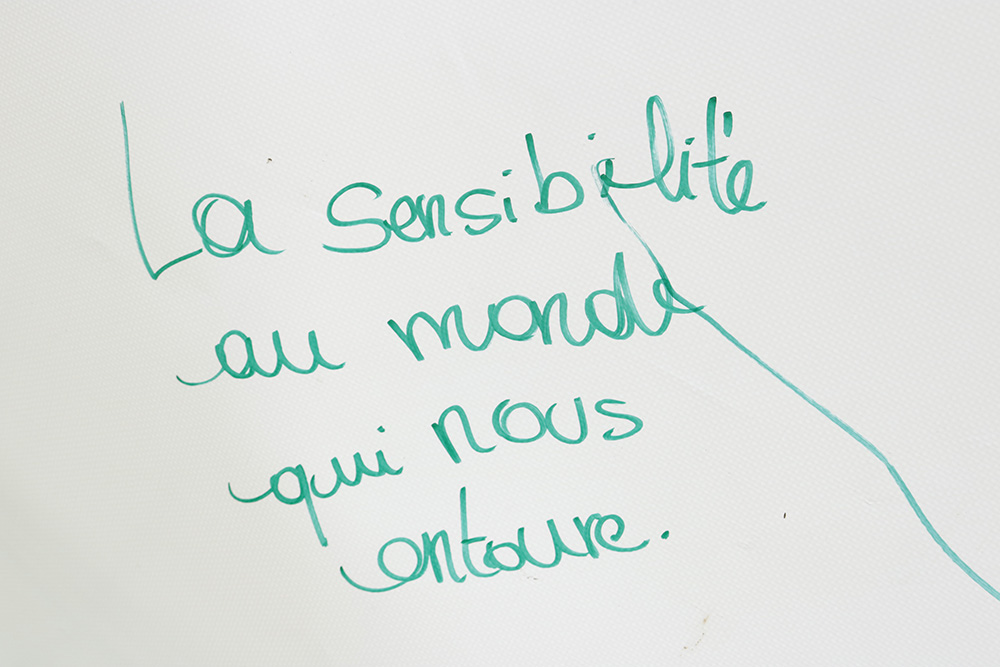 La sensibilité
au monde
qui nous
entoure.